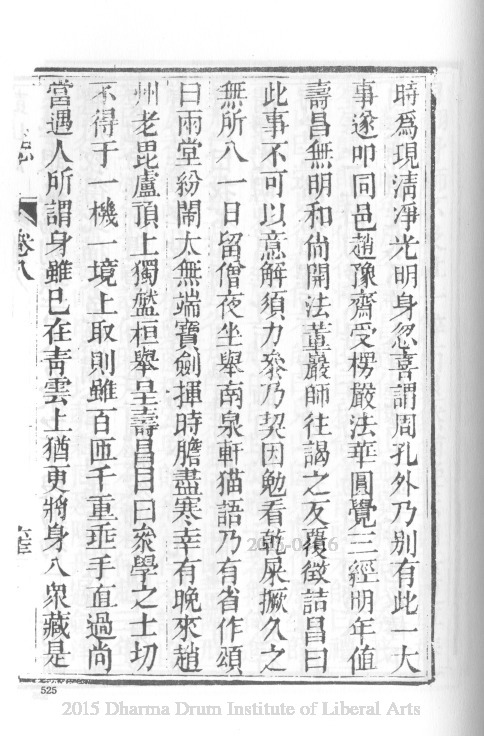 時爲現清淨光明身忽喜謂周孔外乃别有此一大
事遂叩同邑趙豫齋受楞嚴法華圓覺三經明年值
壽昌無明和尚開法董巖師往謁之反覆徵詰昌曰
此事不可以意解須力叅乃契因勉看乾屎撅久之
無所入一日留僧夜坐舉南泉斬猫語乃有省作頌
曰兩堂紛鬧太無端寶劍揮時膽盡寒幸有晚來趙
州老毘盧頂上獨盤桓舉呈壽昌目曰叅學之士切
不得于一機一境上取則雖百匝千重垂手直過尚
當遇人所謂身雖已在青雲上猶更將身入衆藏是
卷八
525
2015 Dharma Drum Institute of Liberal Arts